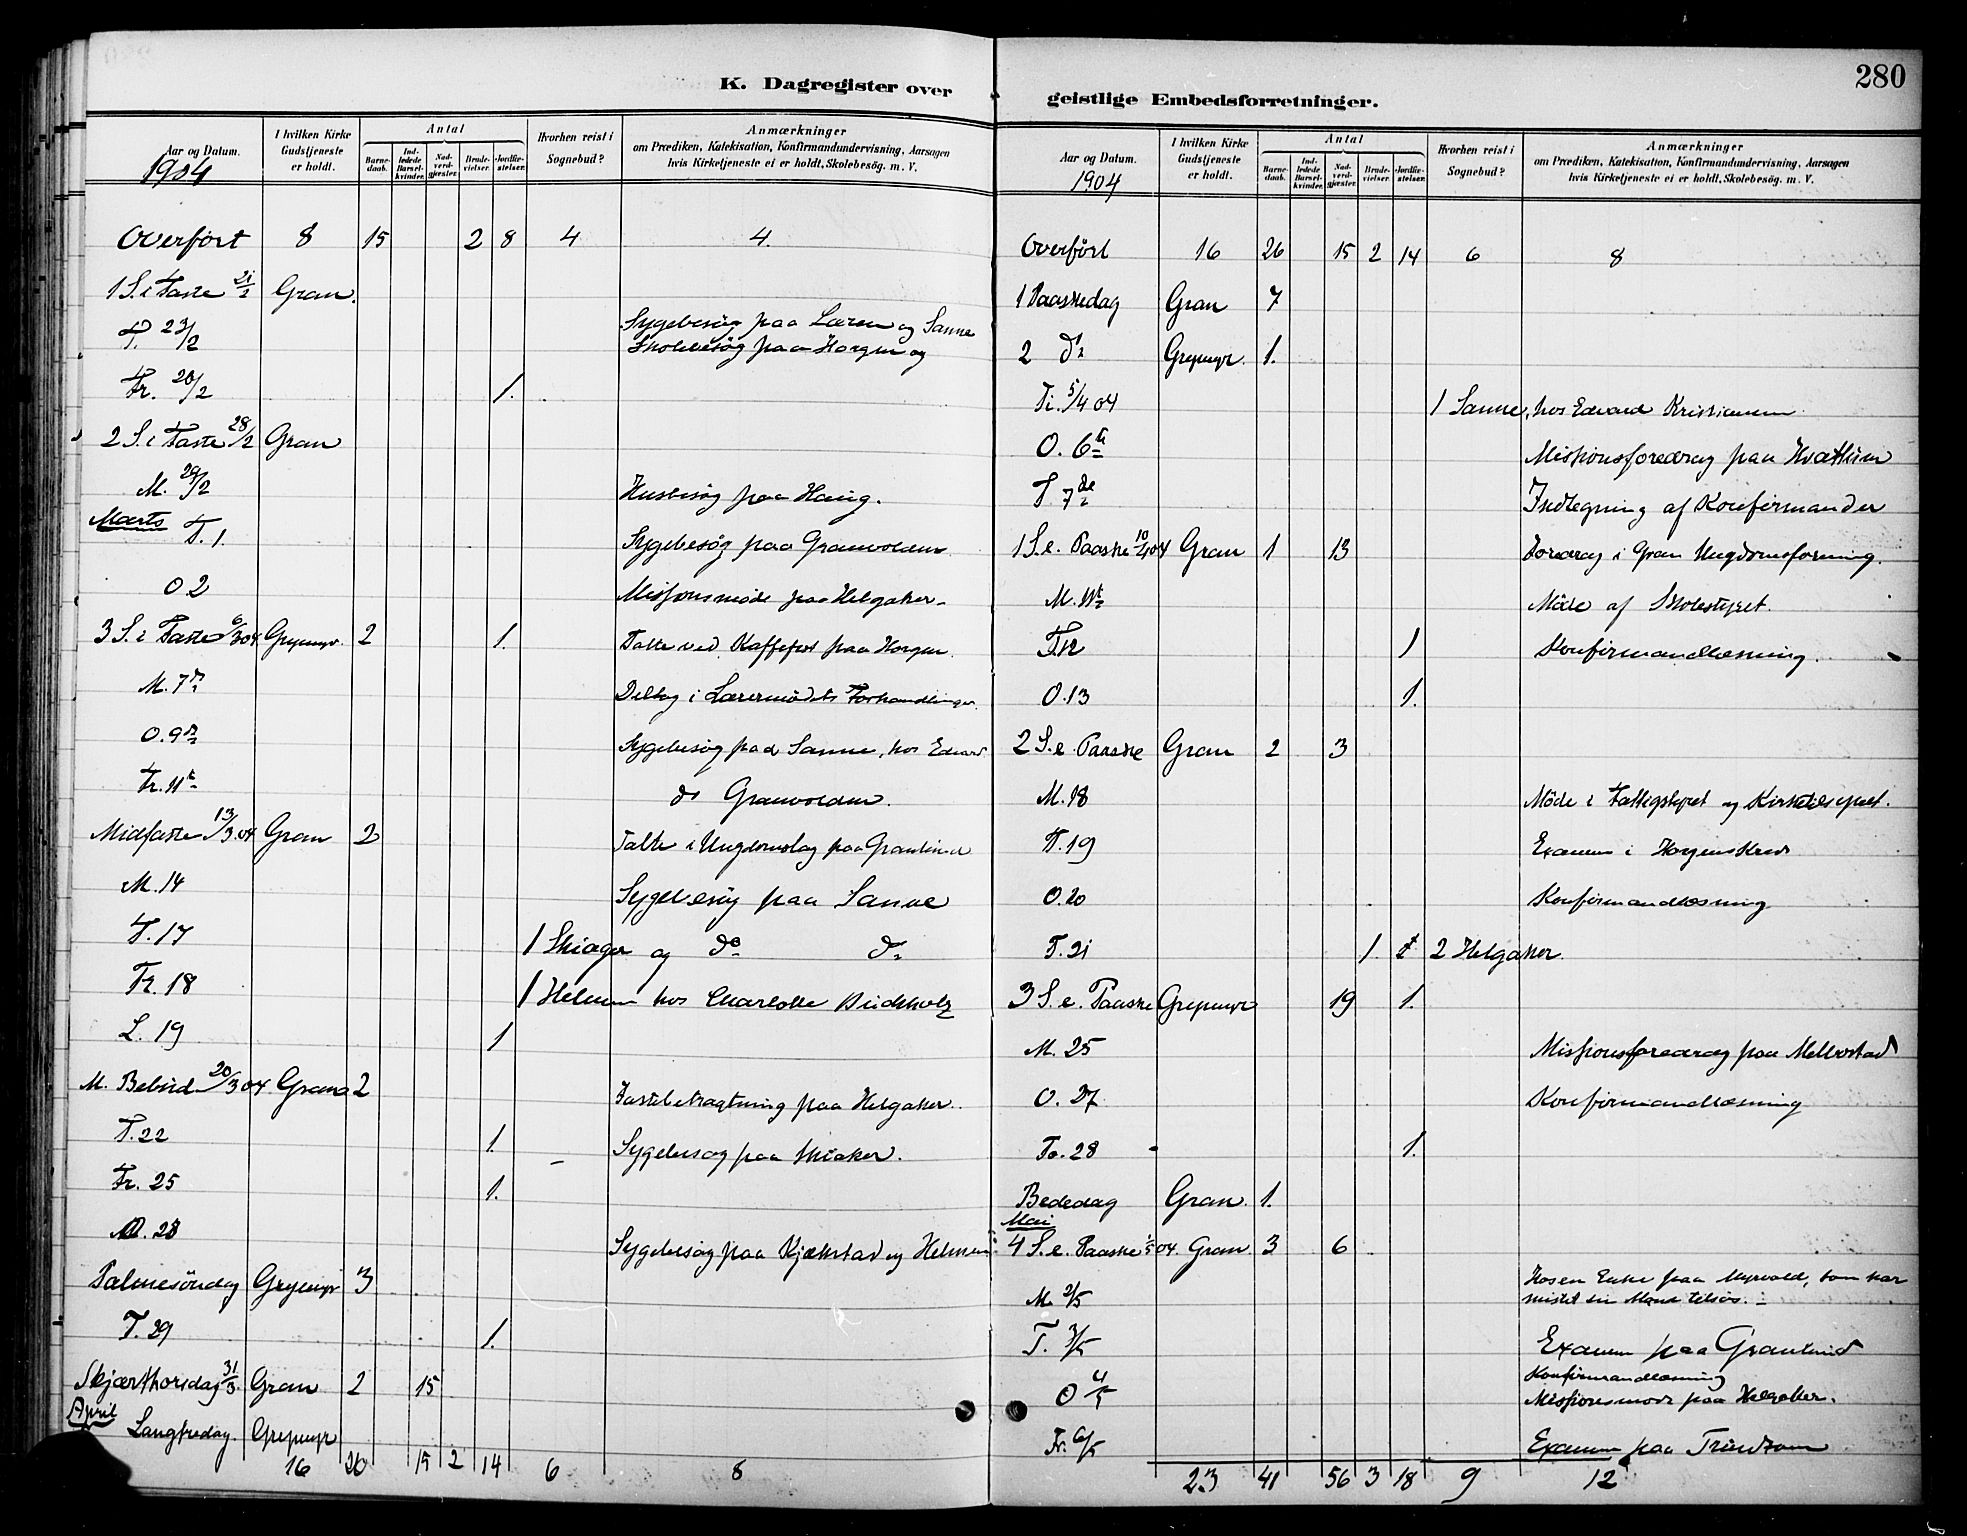 K. Dagregister over
Aar og Datum.
1904
I hvilken Kirke Gudstjeneste er holdt.
Antal
Barnedaab.
Indledede Barselkvinder.
Nadverdgjæster.
Brudevielser.
Jordfæstelser.
Hvorhen reist i Sognebud?
Anmærkninger
om Prædiken, Katekisation, Konfirmandundervisning, Aarsagen
hvis Kirketjeneste ei er holdt, Skolebesög. m. V.
Overført 8 15 2 8 4 4
1 S. i Faste 21/2 Gran.
T. 23/2 Sygebesøg paa Læren og Sanne
Skolebesøg paa Horgen og
Fr. 26/2 1.
2 S. i Faste 28/2 Gran
M. 29/2 Husbesøg paa Haug.
Marts T. 1 Sygebesøg paa Granvolden
O 2 Missionsmøde paa Helgaker
3 S. i Faste 6/3 04 Grymyr. 2 1. Talte ved Kaffefest paa Horgen.
M. 7de Deltog i Lærermødets Forhandlinger.
O. 9de Sygebesøg paa Sanne, hos Edvard
Fr. 11te do Granvolden.
Midfaste 13/3.04 Gran 2 Talte i Ungdomslag paa Granlund
M. 14 Sygebesøg paa Sanne
T. 17 1 Skiager og do do
Fr. 18 1 Helmen hos Charlotte Buckholz
L. 19 1
M. Bebud. 20/3 04 Gran 2 Fastebetragtning paa Helgaker.
T. 22 1. Sygebesøg paa Skiaker.
Fr. 25 1.
M. 28 Sygebesøg paa Kjækstad og Helmen
Palmesøndag Grymyr 3
T. 29 1.
Skjærthorsdag 31/3. Gran 2 15
April
Langfredag. Grymyr
16 20 15 2 14 6 8
280
geistlige Embedsforretninger.
Aar og Datum.
1904
I hvilken Kirke Gudstjeneste er holdt.
Antal
Barnedaab.
Indledede Barselkvinder.
Nadverdgjæster.
Brudevielser.
Jordfæstelser.
Hvorhen reist i Sognebud?
Anmærkninger
om Prædiken, Katekisation, Konfirmandundervisning, Aarsagen
hvis Kirketjeneste ei er holdt, Skolebesög. m. V.
Overført 16 26 15 2 14 6 8
1 Paaskedag Gran 7
2 do Grymyr. 1.
Ti. 5/4 04 1 Sanne, hos Edvard Kristiansen
O. 6te Missionsforedrag paa Hvattum
T 7de Indtegning af Konfirmander
1 S. e. Paaske 10/4 04 Gran 1 13 Foredrag i Gran Ungdomsforening.
M. 11te Møde af Skolestyret.
T. 12 1 Konfirmandlæsning.
O. 13 1.
2 S. e. Paaske Gran 2 3
M. 18 Møde i Fattigstyret og Kirketilsynet.
T. 19 Examen i Horgens Kreds
O. 20 Konfirmandlæsning
T. 21 1. 2 Helgaker.
3 S. e. Paaske Grymyr 19 1.
M. 25 Missionsforedrag paa Mellerstad
O. 27 Konfirmandlæsning
To. 28 1.
Bededag Gran. 1.
Mai
4 S. e. Paaske 1/5 04. Gran 3 6
M. 2/5 Hos en Enke paa Myrvold, som har
mistet sin Mand tilsjøs.
T. 3/5 Examen paa Granlund
O 4/5 Konfirmandlæsning
Missionsmøde paa Helgaker.
Fr. 6/5 Examen paa Trintom
23 41 56 3 18 9 12